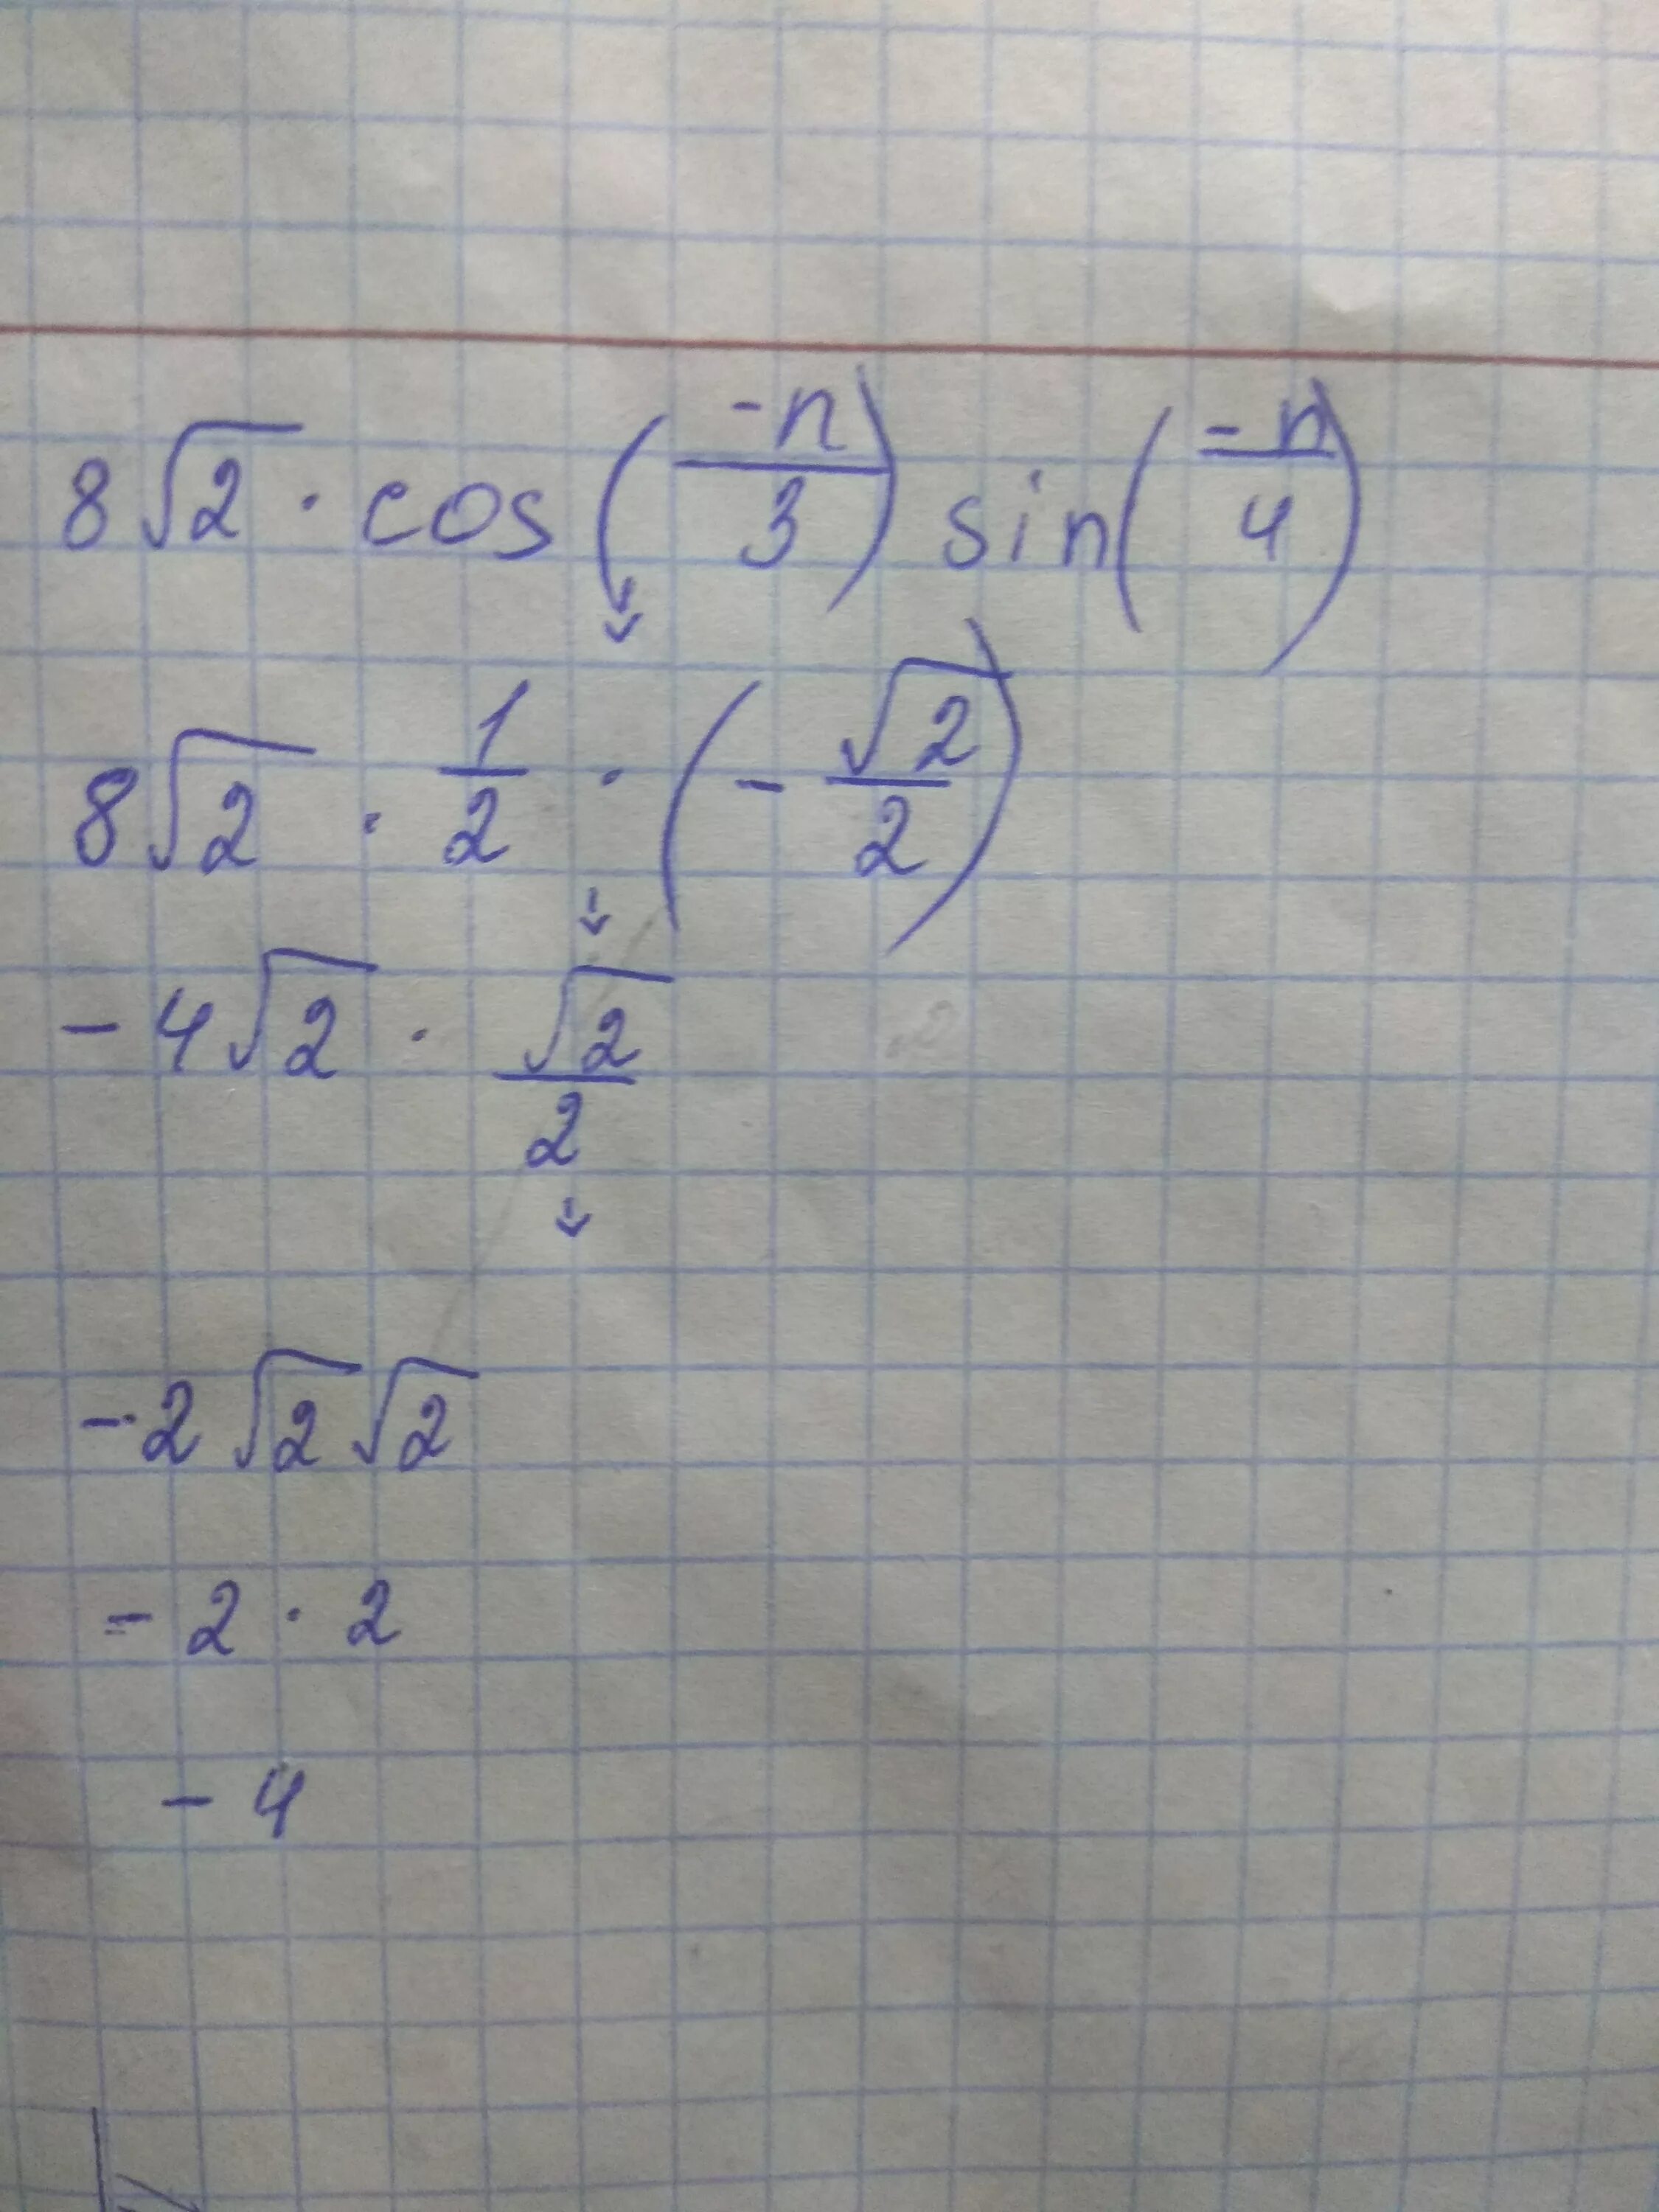 8√2 · cos(-п/3) sin(-п/4)
8√2 · 1/2 · (-√2/2)
-4√2 · √2/2
-2√2√2
-2 · 2
-4